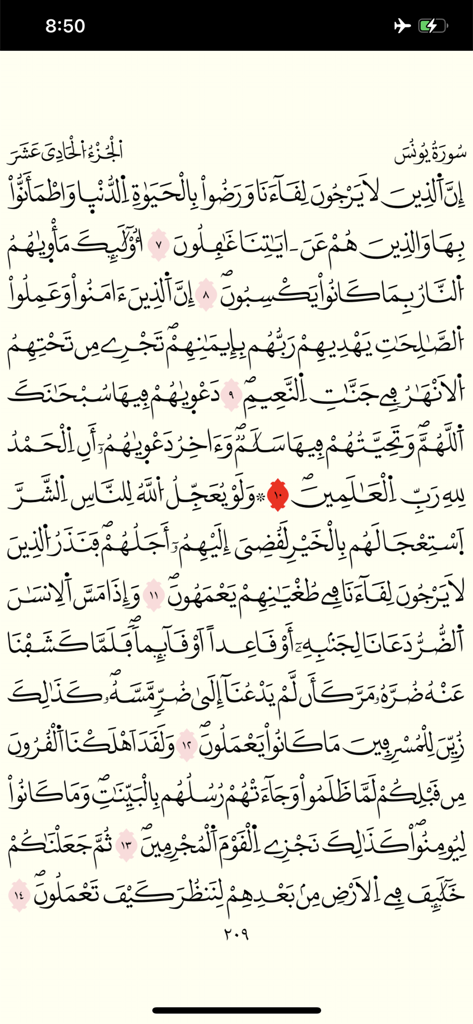 8:50
سُورَةُ يُونُسَ
اَلْجُزْءُ اَلْحَادِي عَشَرَ
إِنَّ اَ۬لذِينَ لَا يَرْجُونَ لِقَآءَنَا وَرَضُواْ بِالْحَيَوٰةِ اِ۬لدُّنْي۪ا وَاطْمَأَنُّواْ
بِهَا وَالذِينَ هُمْ عَنَ اٰيَٰتِنَا غَٰفِلُونَ ٧ أُوْلَٰٓئِكَ مَأْو۪يٰهُمُ
اُ۬لنَّارُ بِمَا كَانُواْ يَكْسِبُونَۖ ٨ إِنَّ اَ۬لذِينَ ءَامَنُواْ وَعَمِلُواْ
اُ۬لصَّٰلِحَٰتِ يَهْدِيهِمْ رَبُّهُم بِإِيمَٰنِهِمْۖ تَجْرِے مِن تَحْتِهِمُ
اُ۬لَانْهَٰرُ فِے جَنَّٰتِ اِ۬لنَّعِيمِۖ ٩ دَعْو۪يٰهُمْ فِيهَا سُبْحَٰنَكَ
اَ۬للَّهُمَّۖ وَتَحِيَّتُهُمْ فِيهَا سَلَٰمٞۖ وَءَاخِرُ دَعْو۪يٰهُمُۥٓ أَنِ اِ۬لْحَمْدُ
لِلهِ رَبِّ اِ۬لْعَٰلَمِينَۖ ١٠ ۞وَلَوْ يُعَجِّلُ اُ۬للَّهُ لِلنَّاسِ اِ۬لشَّرَّ
اَ۪سْتِعْجَالَهُم بِالْخَيْرِ لَقُضِيَ إِلَيْهِمُۥٓ أَجَلُهُمْۖ فَنَذَرُ اُ۬لذِينَ
لَا يَرْجُونَ لِقَآءَنَا فِے طُغْيَٰنِهِمْ يَعْمَهُونَۖ ١١ وَإِذَا مَسَّ اَ۬لِانسَٰنَ
اَ۬لضُّرُّ دَعَانَا لِجَنۢبِهِۦٓ أَوْ قَاعِداً اَوْ قَآئِماٗۖ فَلَمَّا كَشَفْنَا
عَنْهُ ضُرَّهُۥ مَرَّ كَأَن لَّمْ يَدْعُنَآ إِلَىٰ ضُرّٖ مَّسَّهُۥۖ كَذَٰلِكَ
زُيِّنَ لِلْمُسْرِفِينَ مَا كَانُواْ يَعْمَلُونَۖ ١٢ وَلَقَدَ اَهْلَكْنَا اَ۬لْقُرُونَ
مِن قَبْلِكُمْ لَمَّا ظَلَمُواْ وَجَآءَتْهُمْ رُسُلُهُم بِالْبَيِّنَٰتِۖ وَمَا كَانُواْ
لِيُومِنُواْۖ كَذَٰلِكَ نَجْزِے اِ۬لْقَوْمَ اَ۬لْمُجْرِمِينَۖ ١٣ ثُمَّ جَعَلْنَٰكُمْ
خَلَٰٓئِفَ فِے اِ۬لَارْضِ مِنۢ بَعْدِهِمْ لِنَنظُرَ كَيْفَ تَعْمَلُونَۖ ١٤
٢٠٩